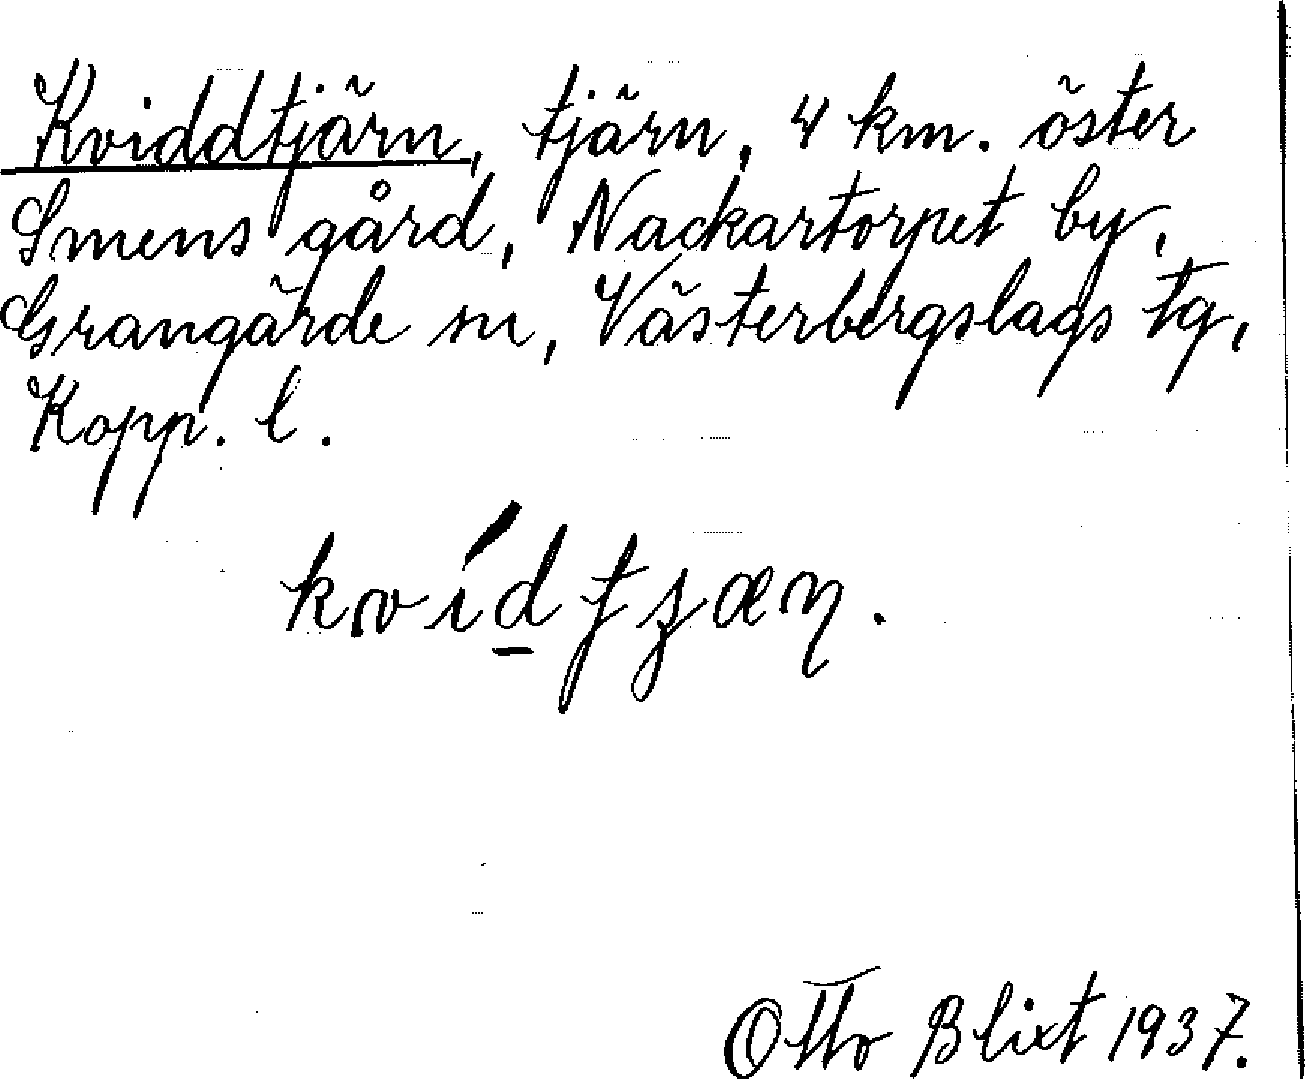 Kviddtjärn, tjärn, 4 km. öster
Smens gård, Nackartorpet by,
Grangärde sn, Västerbergslags tg,
Kopp. l.
kvíd̲ tʒæɳ.
Otto Blixt 1937.